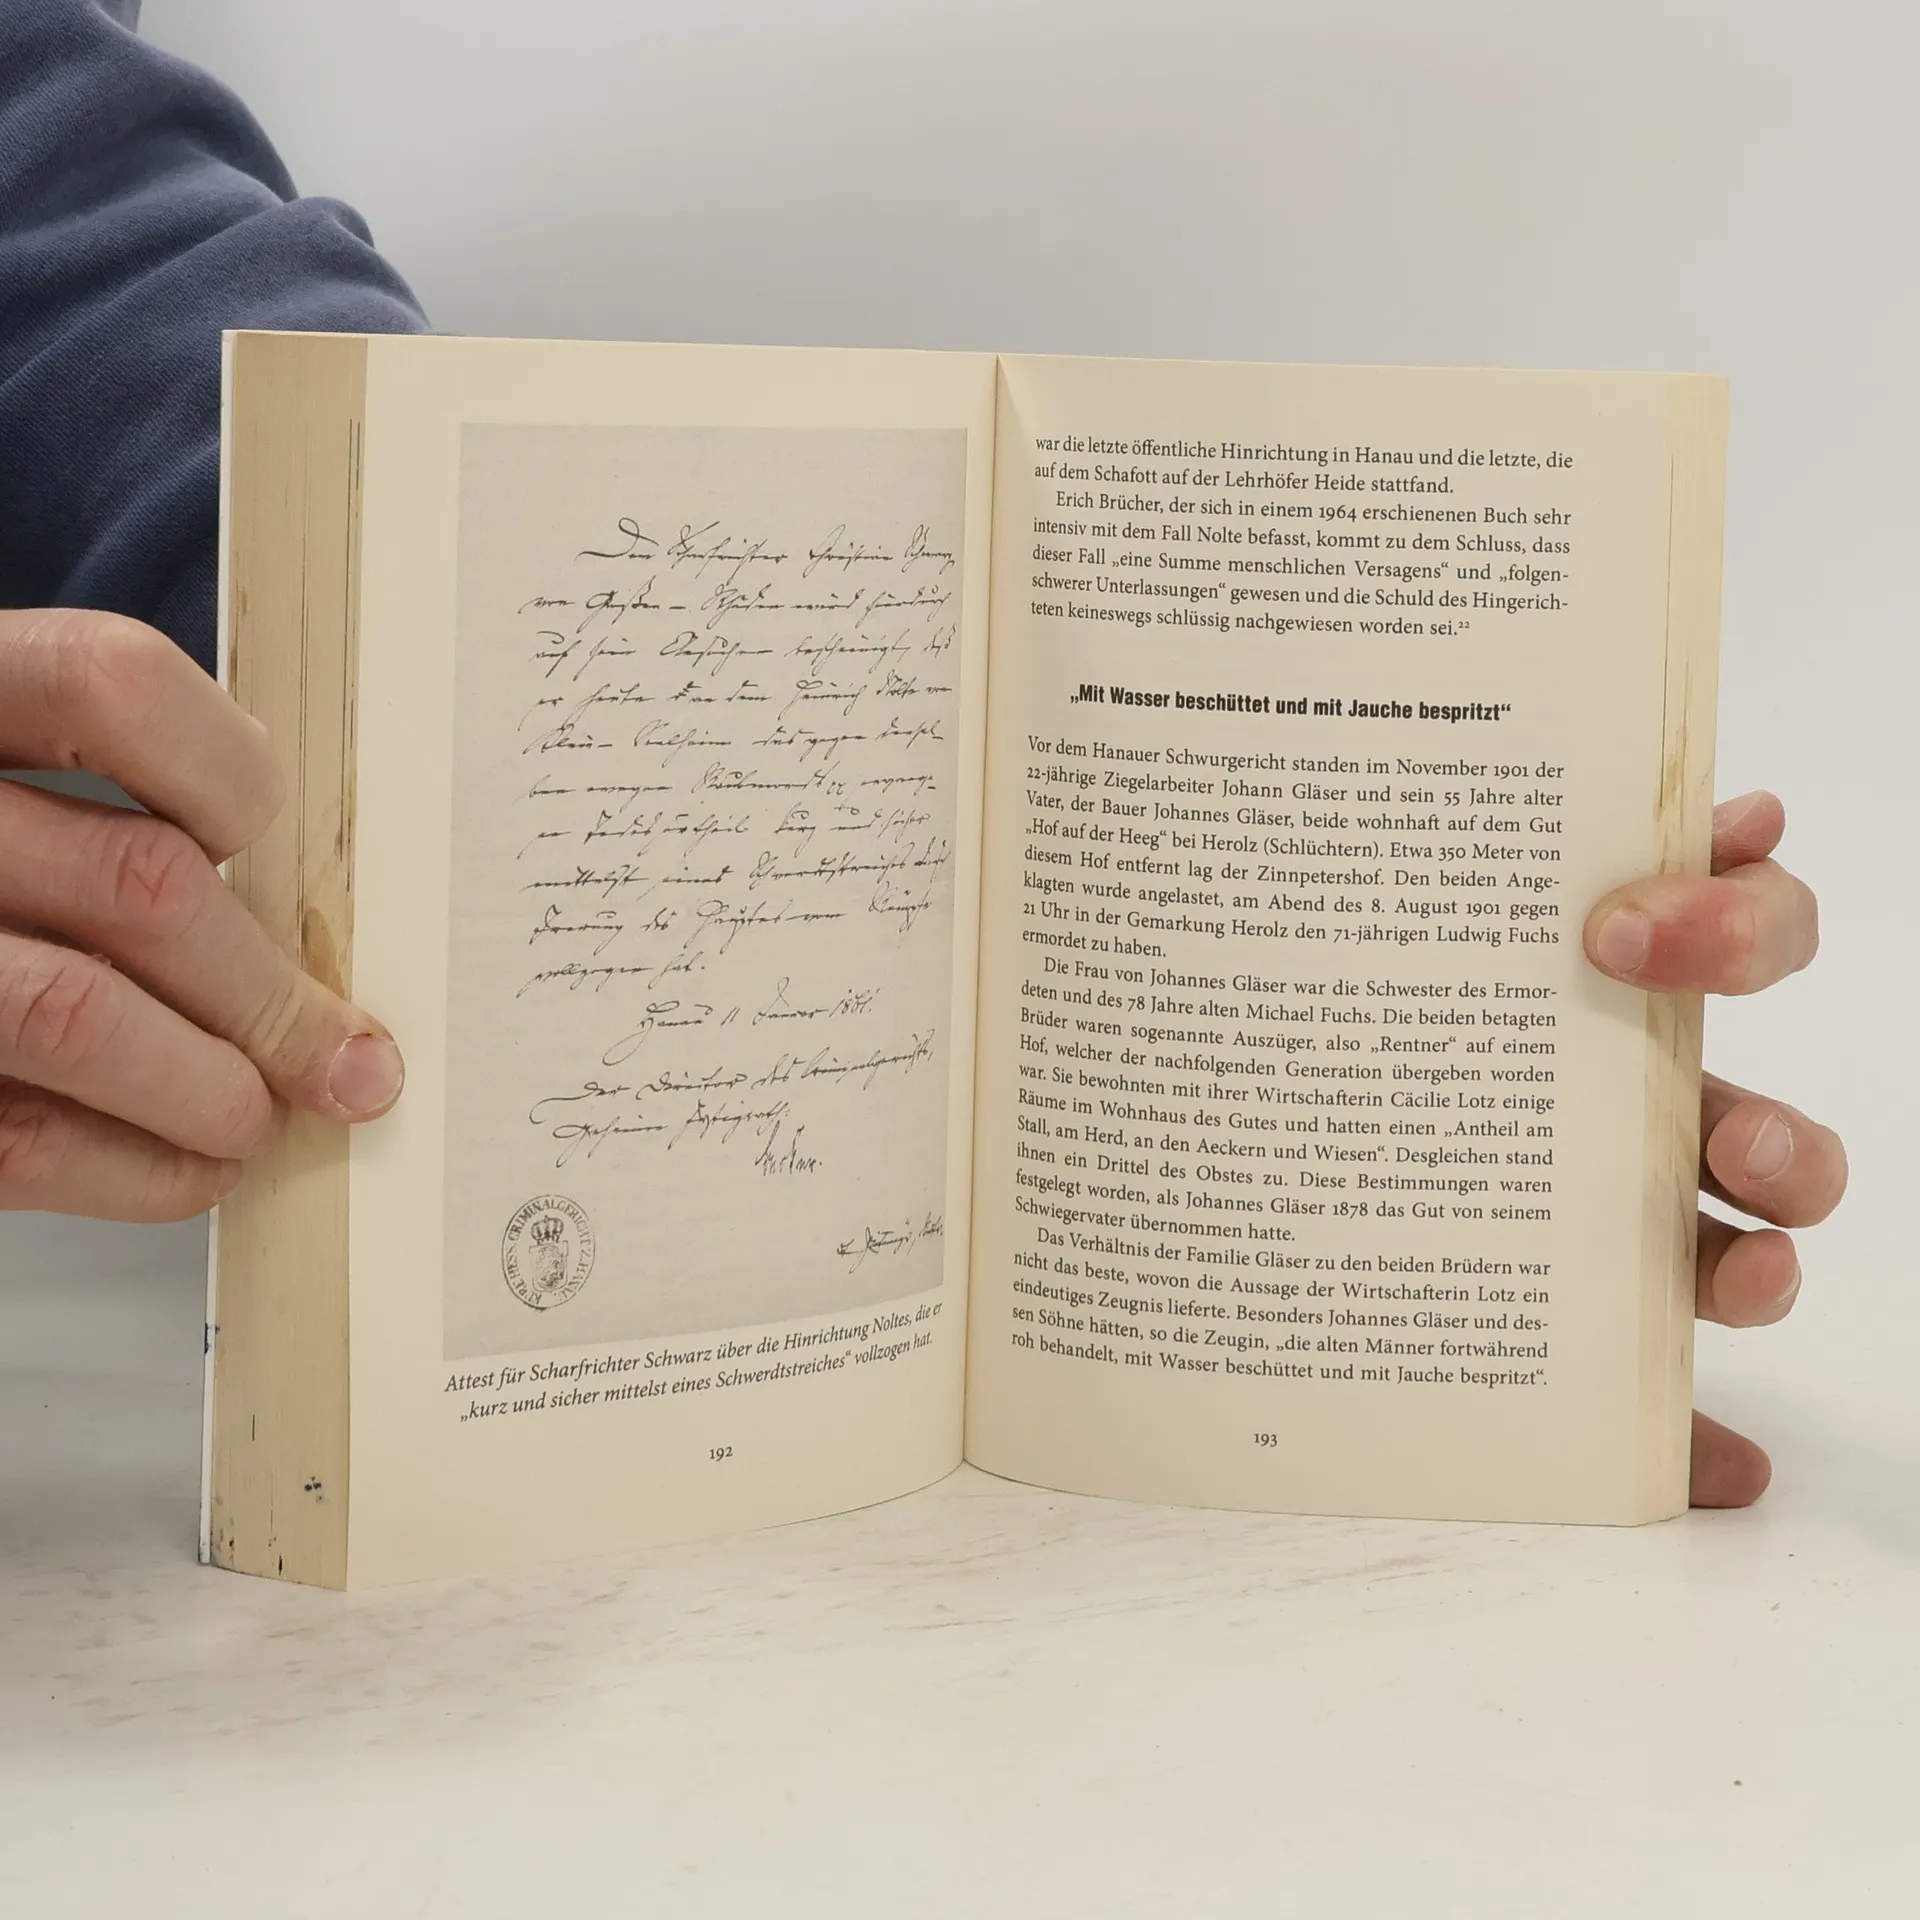 Dem Scharfrichter Christian Schwarz
von Großen – Rhüden wird hierdurch
auf sein Ansuchen bescheinigt, daß
er heute an dem Heinrich Nolte von
Klein – Seelheim das gegen densel-
ben wegen Raubmords ergange-
ne Todesurtheil kurz und sicher
mittelst eines Schwerdtstreiches durch
Trennung des Hauptes vom Rumpfe
vollzogen hat.
Hanau 11 Januar 1861.
Der Director des Criminalgerichts,
Geheime
KURHESS. CRIMINALGERICHT
Attest für Scharfrichter Schwarz über die Hinrichtung Noltes, die er
„kurz und sicher mittelst eines Schwerdtstreiches“ vollzogen hat.
192
war die letzte öffentliche Hinrichtung in Hanau und die letzte, die
auf dem Schafott auf der Lehrhöfer Heide stattfand.
Erich Brücher, der sich in einem 1964 erschienenen Buch sehr
intensiv mit dem Fall Nolte befasst, kommt zu dem Schluss, dass
dieser Fall „eine Summe menschlichen Versagens“ und „folgen-
schwerer Unterlassungen“ gewesen und die Schuld des Hingerich-
teten keineswegs schlüssig nachgewiesen worden sei.²²
„Mit Wasser beschüttet und mit Jauche bespritzt“
Vor dem Hanauer Schwurgericht standen im November 1901 der
22-jährige Ziegelarbeiter Johann Gläser und sein 55 Jahre alter
Vater, der Bauer Johannes Gläser, beide wohnhaft auf dem Gut
„Hof auf der Heeg“ bei Herolz (Schlüchtern). Etwa 350 Meter von
diesem Hof entfernt lag der Zinnpetershof. Den beiden Ange-
klagten wurde angelastet, am Abend des 8. August 1901 gegen
21 Uhr in der Gemarkung Herolz den 71-jährigen Ludwig Fuchs
ermordet zu haben.
Die Frau von Johannes Gläser war die Schwester des Ermor-
deten und des 78 Jahre alten Michael Fuchs. Die beiden betagten
Brüder waren sogenannte Auszüger, also „Rentner“ auf einem
Hof, welcher der nachfolgenden Generation übergeben worden
war. Sie bewohnten mit ihrer Wirtschafterin Cäcilie Lotz einige
Räume im Wohnhaus des Gutes und hatten einen „Antheil am
Stall, am Herd, an den Aeckern und Wiesen“. Desgleichen stand
ihnen ein Drittel des Obstes zu. Diese Bestimmungen waren
festgelegt worden, als Johannes Gläser 1878 das Gut von seinem
Schwiegervater übernommen hatte.
Das Verhältnis der Familie Gläser zu den beiden Brüdern war
nicht das beste, wovon die Aussage der Wirtschafterin Lotz ein
eindeutiges Zeugnis lieferte. Besonders Johannes Gläser und des-
sen Söhne hätten, so die Zeugin, „die alten Männer fortwährend
roh behandelt, mit Wasser beschüttet und mit Jauche bespritzt“.
193